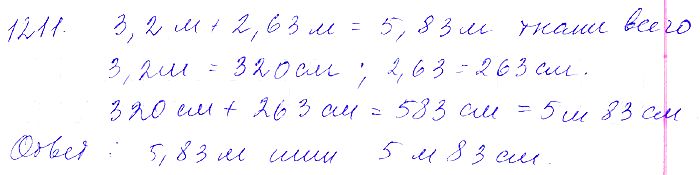 1211. 3,2 м + 2,63 м = 5,83 м ткани всего
3,2м = 320 см ; 2,63 = 263 см.
320 см + 263 см = 583 см = 5 м 83 см
Ответ : 5,83 м или 5 м 83 см.